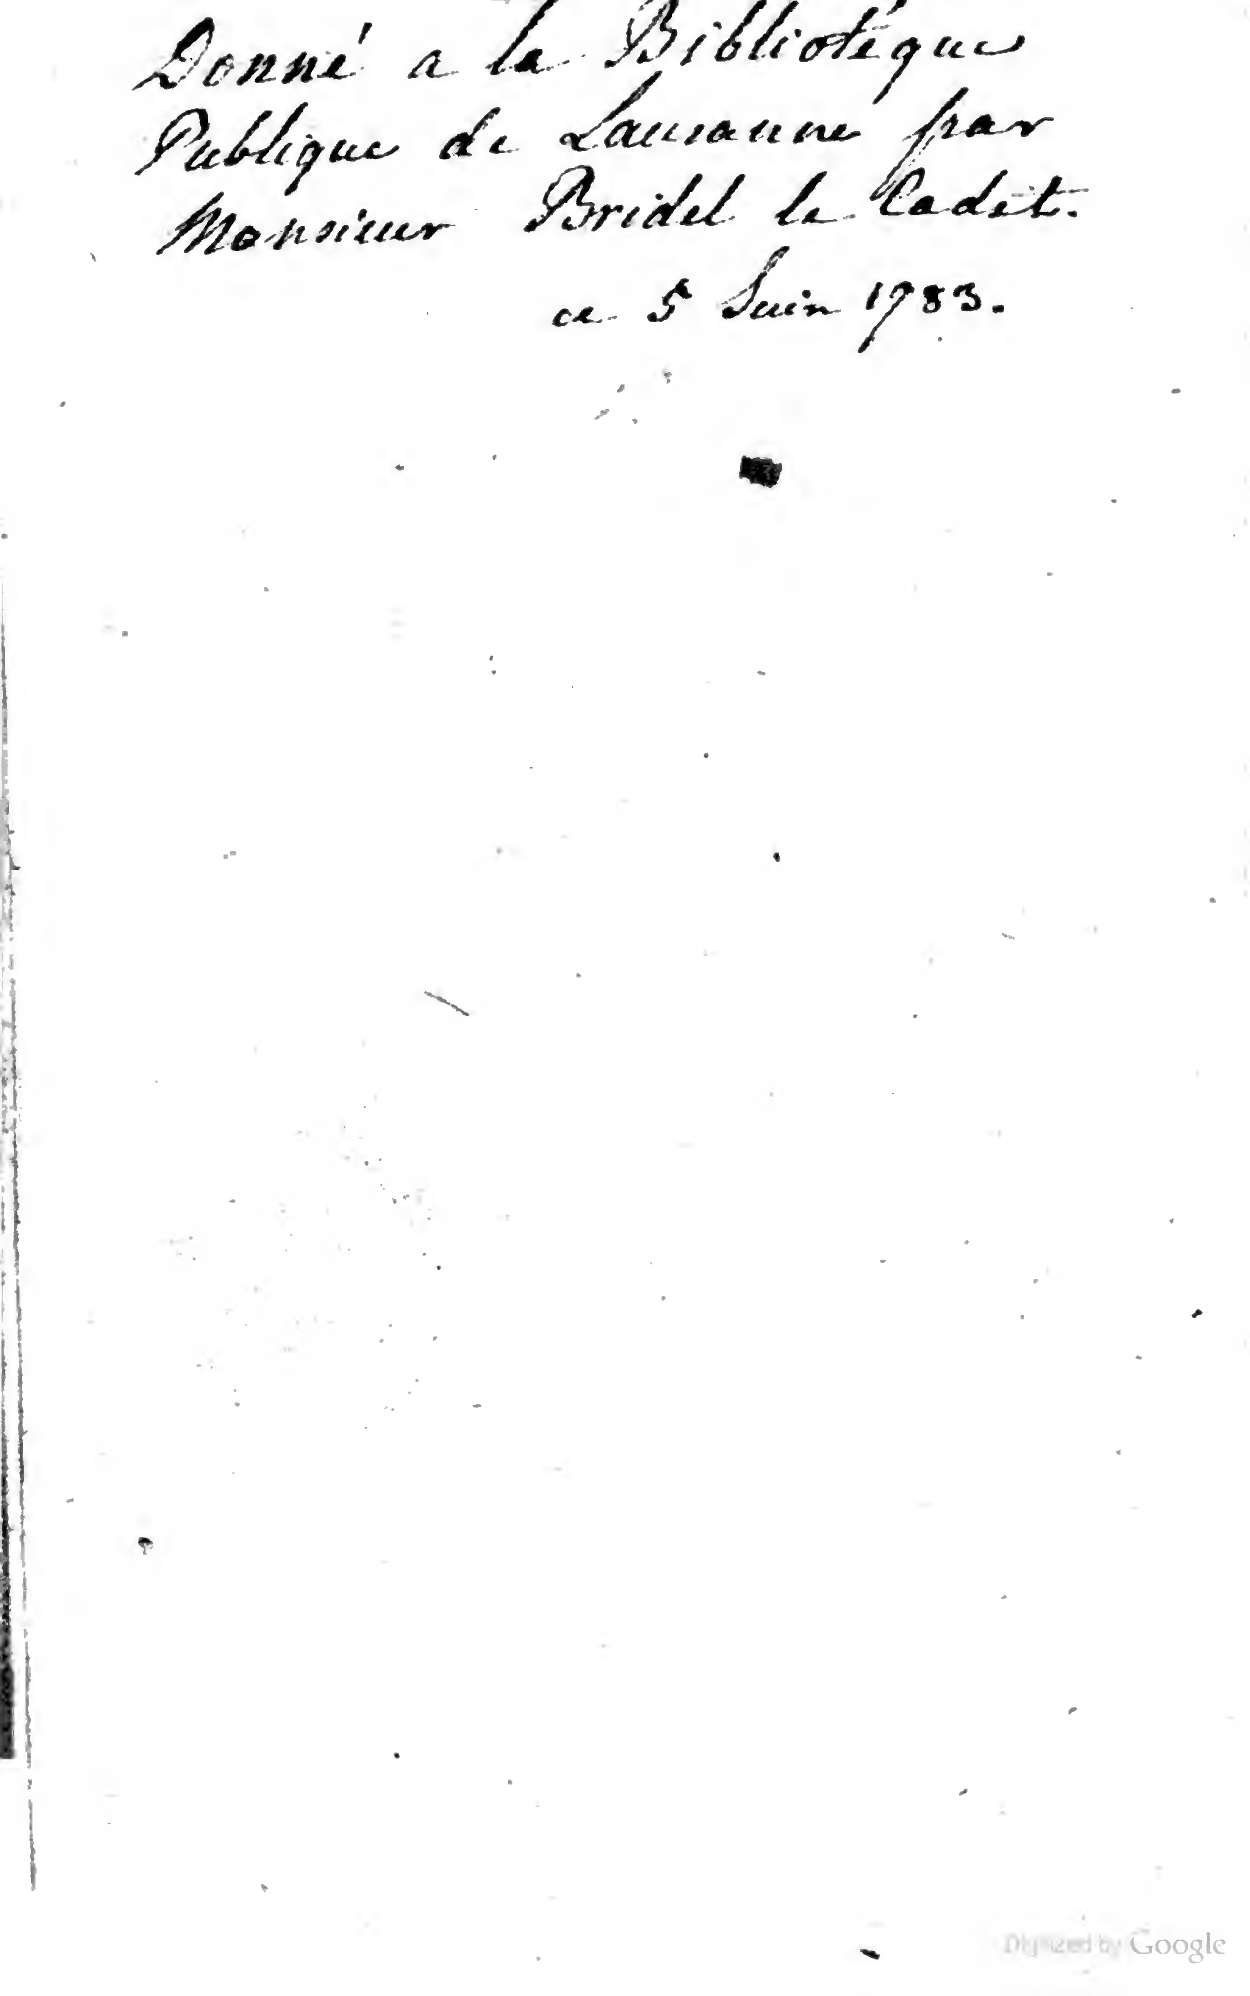 Donné a la Bibliotéque
Publique de Lausanne par
Monsieur Bridel le Cadet.
ce 5 Juin 1783.
Digitized by Google